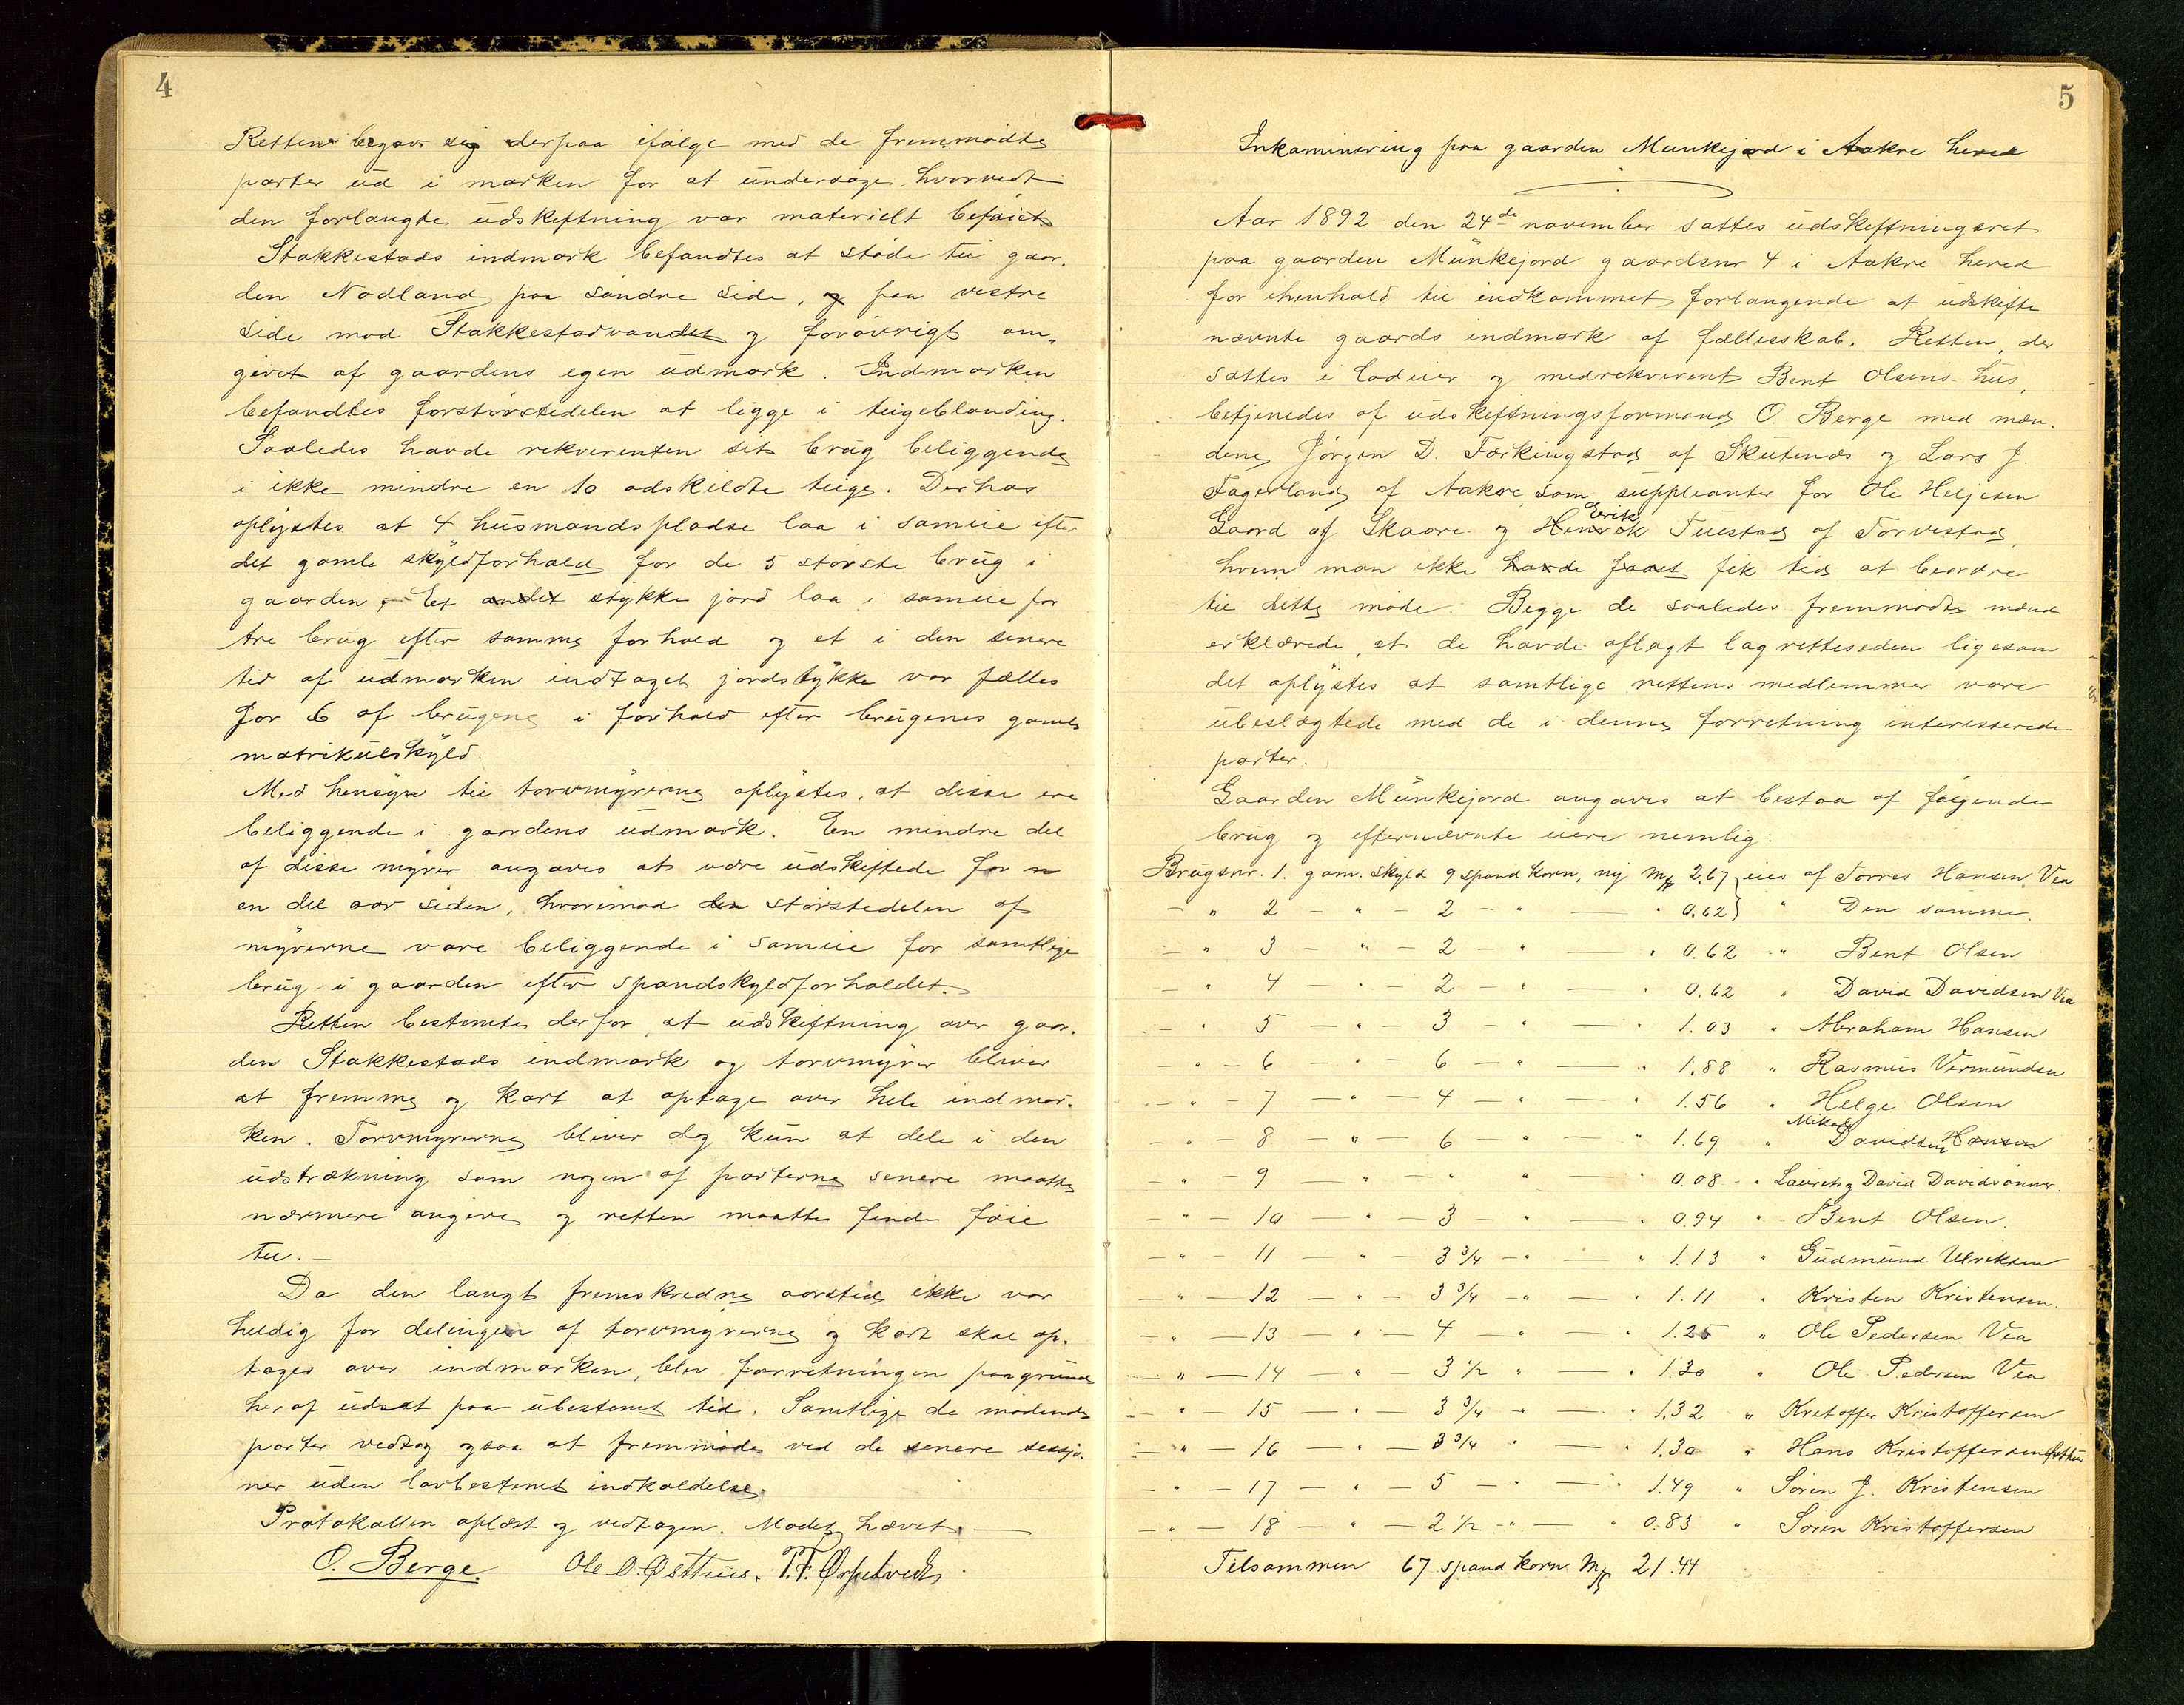 4
Retten begav sig derpaa ifølge med de fremmødte
parter ud i marken for at undersøge hvorvidt
den forlangte udskiftning var materielt beføiet.
Stakkestads indmark befandtes at støde til gaar-
den Nodland paa søndre side, og paa vestre
side mod Stakkestadvandet og forøvrigt om-
givet af gaardens egen udmark. Indmarken
befandtes forstørstedelen at ligge i teigeblanding.
Saaledes havde rekvirenten sit brug beliggende
i ikke mindre en 10 adskildte teige. Derhos
oplystes at 4 husmandspladse laa i sameie efter
det gamle skyldforhold for de 5 største brug i
gaarden, Et andet stykke jord laa i sameie for
tre brug efter samme forhold og et i den senere
tid af udmarken indtaget jordstykke var fælles
for 6 af brugene i forhold efter brugenes gamle
matrikulskyld.
Med hensyn til torvmyrerne oplystes, at disse ere
beliggende i gaardens udmark. En mindre del
af disse myrer angaves at være udskiftede for
en del aar siden, hvorimod den størstedelen af
myrerne vare beliggende i sameie for samtlige
brug i gaarden efter spandskyldforholdet.
Retten bestemte derfor at udskiftning over gaar-
den Stakkestads indmark og torvmyrer bliver
at fremme og kart at optage over hele indmar-
ken. Torvmyrerne bliver dog kun at dele i den
udstrækning som nogen af parterne senere maatte
nærmere angive og retten maatte finde føie
til. –
Da den langt fremskredne aarstid ikke var
heldig for delingen af torvmyrerne og kart skal op-
tages over indmarken, blev forretningen paagrund
heraf udsat paa ubestemt tid. Samtlige de mødende
parter vedtog ogsaa at fremmøde ved de senere sessjo-
ner uden lovbestemt indkaldelse.
Protokollen oplæst og vedtagen. Mødet hævet. —
O. Berge. Ole O. Østhus.
5
Inkaminering paa gaarden Munkejord i Aakre hered
Aar 1892 den 24de november sattes udskiftningsret
paa gaarden Munkejord gaardsnr 4 i Aakre hered
for ihenhold til indkommet forlangende at udskifte
nævnte gaards indmark af fællesskab. Retten, der
sattes i lodeier og medrekvirent Bent Olsens hus,
betjenedes af udskiftningsformand O. Berge med mæn-
dene Jørgen D. Færkingstad af Skutenes og Lars J.
Fagerland af Aakre som suppleanter for Ole Heljesen
Gaard af Skaare og Henrik Erik Tuestad af Torvestad,
hvem man ikke havde faaet fik tid at beordre
til dette møde. Begge de saaledes fremmødte mænd
erklærede, at de havde aflagt lagretteseden ligesom
det oplystes at samtlige rettens medlemmer vare
ubeslægtede med de i denne forretning interesserede
parter.
Gaarden Munkejord angaves at bestaa af følgende
brug og efternævnte eiere nemlig:
Brugsnr. 1. gam. skyld 9 spand korn, ny Mk 2.67 } eies af Torres Hansen Vea
— " 2 — " — 2 — " — " 0.62 } " Den samme.
— " 3 — " — 2 — " — " 0.62 " Bent Olsen
— " 4 — " — 2 — " — " 0.62 " David Davidsen Vea
— " 5 — " — 3 — " — " 1.03 " Abraham Hansen
— " 6 — " — 6 — " — " 1.88 " Rasmus Vermundsen
— " — 7 — " — 4 — " — " 1.56 " Helge Olsen
— " — 8 — " — 6 — " — " 1.69 " Mikal Davidsen Hansen
— " — 9 — " — " — " 0.08 — " Laurits og David Davidsønner.
— " — 10 — " — 3 — " — " 0.94 " Bent Olsen.
— " — 11 — " — 3 3/4 — " — " 1.13 " Gudmund Ulriksen
— " — 12 — " — 3 3/4 — " — " 1.11 " Kristen Kristensen.
— " — 13 — " — 4 — " — " 1.25 " Ole Pedersen Vea
— " — 14 — " — 3 1/2 " — " 1.30 " Ole Pedersen Vea
— " — 15 — " — 3 3/4 — " — " 1.32 " Kristoffer Kristoffersen
— " — 16 — " — 3 3/4 " — " 1.30 " Hans Kristoffersen Østhus
— " — 17 — " — 5 — " — " 1.49 " Søren J. Kristensen
— " — 18 — " — 2 1/2 — " — " 0.83 " Søren Kristoffersen
Tilsammen 67 spand korn Mk 21.44